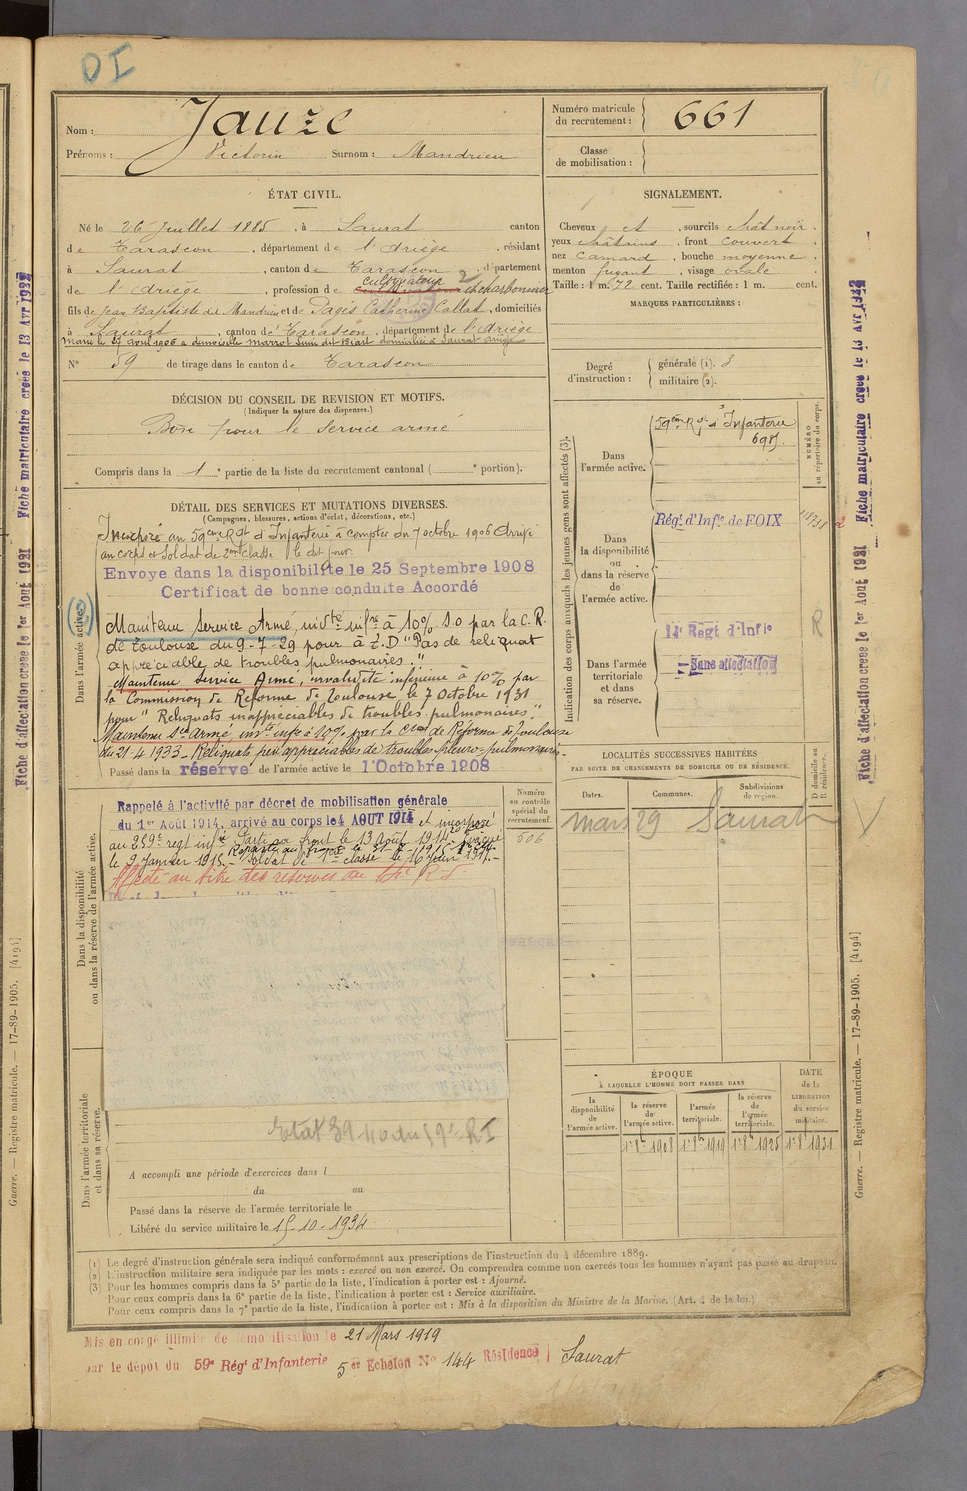 DI
Nom : Jauze
Prénoms : Victorin Surnom : Mandrieu
Numéro matricule du recrutement : 661
Classe de mobilisation :
ÉTAT CIVIL.
Né le 26 Juillet 1885, à Saurat canton
de Tarascon, département de l'Ariège, résidant
à Saurat, canton de Tarascon, département
de l'Ariège, profession de cultivateur charbonnier
fils de Jean Baptiste dit Mandrieu et de Pagès Catherine Callat, domiciliés
à Saurat, canton de Tarascon, département de l'Ariège
Marié le 27 avril 1906 à demoiselle Marrot domicilié à Saurat Ariège
N° 59 de tirage dans le canton de Tarascon
SIGNALEMENT.
Cheveux et, sourcils chât noir.
yeux châtains, front couvert.
nez camard, bouche moyenne.
menton fuyant, visage ovale.
Taille : 1 m. 72 cent. Taille rectifiée : 1 m. cent.
MARQUES PARTICULIÈRES :
Degré d'instruction : générale (1). 3
militaire (2).
DÉCISION DU CONSEIL DE REVISION ET MOTIFS.
(Indiquer la nature des dispenses.)
Bon pour le service armé
Compris dans la 1e partie de la liste du recrutement cantonal ( e portion).
DÉTAIL DES SERVICES ET MUTATIONS DIVERSES.
(Campagnes, blessures, actions d'éclat, décorations, etc.)
Dans l'armée active.
Incorporé au 59ème Rgt d'Infanterie à compter du 7 octobre 1906 Arrivé
au corps et Soldat de 2me classe le dit jour.
Envoye dans la disponibilite le 25 Septembre 1908
Certificat de bonne conduite Accordé
Maintenu Service Armé, invdté infre à 10% S.O par la C.R.
de Toulouse du 9-7-29 pour à E.D "Pas de reliquat
appréciable de troubles pulmonaires."
Maintenu Service Armé, invalidité inférieure à 10% par
la Commission de Réforme de Toulouse le 7 Octobre 1931
pour "Reliquats inappréciables de troubles pulmonaires."
Maintenu Sce Armé, invté infre à 10% par la Cion de Réforme de Toulouse
du 21-4-1933. Reliquats peu appréciables de troubles pleuro-pulmonaires.
Passé dans la réserve de l'armée active le 1 Octobre 1908
Dans la disponibilité ou dans la réserve de l'armée active.
Rappelé à l'activité par décret de mobilisation générale
du 1er Août 1914, arrivé au corps le 4 AOUT 1914 et incorporé
au 259e regt infie Parti au front le 13 Août 1914 Evacué
le 9 Janvier 1915.- Soldat de 1ère classe le 16 Juin 1917.-
Affecté au titre des réserves au
Numéro au contrôle spécial du recrutement.
606
Dans l'armée territoriale et dans sa réserve.
Etat 39 40 du 59e RI
A accompli une période d'exercices dans l
du au
Passé dans la réserve de l'armée territoriale le
Libéré du service militaire le 15-10-1934
Indication des corps auxquels les jeunes gens sont affectés (3).
Dans l'armée active.
59ème Rgt d'Infanterie
NUMÉRO au répertoire du corps.
Dans la disponibilité ou dans la réserve de l'armée active.
Régt d'Infie de FOIX
Dans l'armée territoriale et dans sa réserve.
14e Régt d'Infie
Sans affectation
R
LOCALITÉS SUCCESSIVES HABITÉES
PAR SUITE DE CHANGEMENTS DE DOMICILE OU DE RÉSIDENCE.
Dates. Communes. Subdivisions de région. D domicile ou R résidence.
mars 29 Saurat
ÉPOQUE
À LAQUELLE L'HOMME DOIT PASSER DANS
DATE de la LIBÉRATION du service militaire.
la disponibilité de l'armée active. la réserve de l'armée active. l'armée territoriale. la réserve de l'armée territoriale.
1er 8bre 1908 1er 8bre 1919 1er 8bre 1925 1er 8bre 1931
(1) Le degré d'instruction générale sera indiqué conformément aux prescriptions de l'instruction du 4 décembre 1889.
(2) L'instruction militaire sera indiquée par les mots : exercé ou non exercé. On comprendra comme non exercés tous les hommes n'ayant pas passé au drapeau.
(3) Pour les hommes compris dans la 5e partie de la liste, l'indication à porter est : Ajourné.
Pour ceux compris dans la 6e partie de la liste, l'indication à porter est : Service auxiliaire.
Pour ceux compris dans la 7e partie de la liste, l'indication à porter est : Mis à la disposition du Ministre de la Marine. (Art. 4 de la loi.)
Mis en congé illimité de démobilisation le 21 Mars 1919
par le dépôt du 59e Régt d'Infanterie 5er Echelon N° 144 Résidence Saurat
Fiche d'affectation creee le 1er Aout 1921 Fiche matriculaire creee le 13 Avr 1922
Fiche d'affectation creee le 1er Aout 1921 Fiche matriculaire creee le 13 Avr 1922
Guerre. — Registre matricule. — 17-89-1905. [4194]
Guerre. — Registre matricule. — 17-89-1905. [4194]